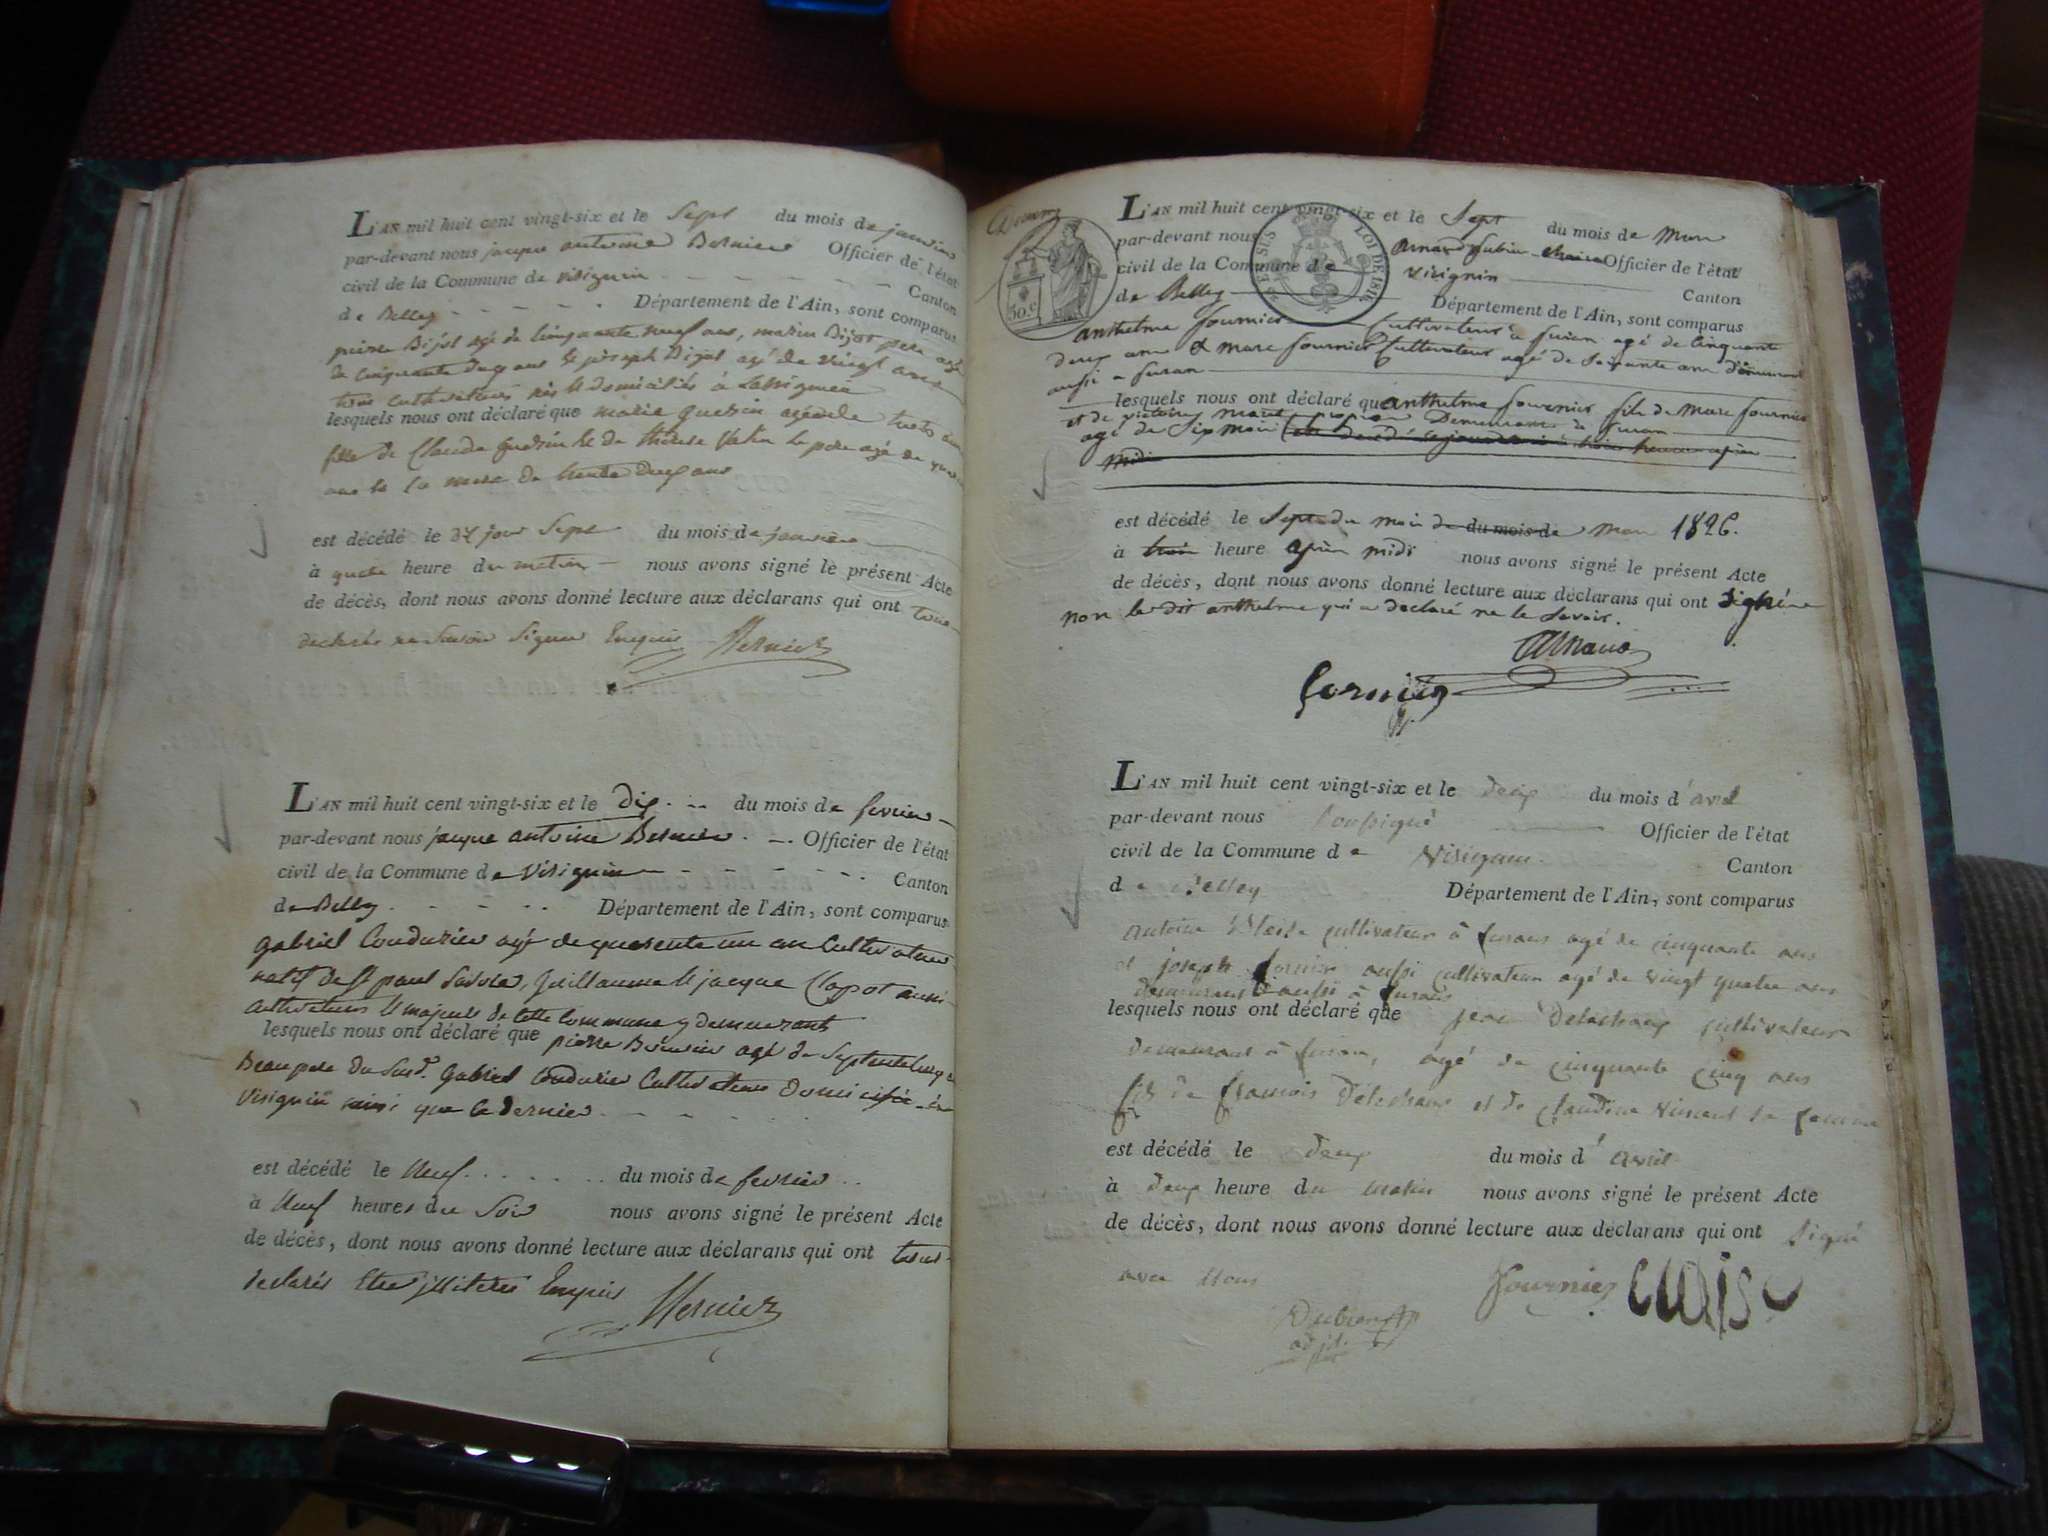 L'AN mil huit cent vingt-six et le Sept du mois de janvier
par-devant nous jacque antoine Bernier Officier de l'état
civil de la Commune de Virignin Canton
de Belley Département de l'Ain, sont comparus
pierre Bijot agé de Cinquante neuf ans, Bijot pere agé
de cinquante ans & joseph Bijot agé de vingt ans
tous cultivateurs nés & domiciliés à
lesquels nous ont déclaré que marie guerin agée de trois ans
fille de Claude guerin & de thérese le pere agé de
ans & la mere de trente deux ans
est décédé le jour Sept du mois de janvier
à quatre heure du matin nous avons signé le présent Acte
de décès, dont nous avons donné lecture aux déclarans qui ont tous
declarés ne Savoir Signer Enquis Bernier
L'AN mil huit cent vingt-six et le dix du mois de fevrier
par-devant nous jacque antoine Bernier Officier de l'état
civil de la Commune de Virignin Canton
de Belley Département de l'Ain, sont comparus
gabriel Coudurier agé de quarente un an Cultivateur
natif de St paul Savoie, Guillaume & jacque Clapot aussi
cultivateurs & majeurs de cette Commune y demeurants
lesquels nous ont déclaré que pierre Bernier agé de Septente
Beaupere du Susd. Gabriel Coudurier Cultivateur domicilié
Virignin ainsi que le dernier
est décédé le Neuf du mois de fevrier
à Neuf heures du Soir nous avons signé le présent Acte
de décès, dont nous avons donné lecture aux déclarans qui ont tous
declarés Etre illiterés Enquis Bernier
50.c
L'AN mil huit cent vingt-six et le Sept du mois de Mars
par-devant nous Arnaud Officier de l'état
civil de la Commune de Virignin Canton
de Belley Département de l'Ain, sont comparus
LOI DE 1816
anthelme fournier Cultivateur à furan agé de Cinquante
deux ans & marc fournier Cultivateur agé de Soixante ans demeurant
aussi a furan
lesquels nous ont déclaré que anthelme fournier fils de Marc fournier
et de victoire Demeurant à furan
agé de Six mois est decedé à trois heures après
midi
est décédé le Sept du mois de du mois de Mars 1826.
à trois heure après midi nous avons signé le présent Acte
de décès, dont nous avons donné lecture aux déclarans qui ont Signé
non le dit anthelme qui a declaré ne le Savoir.
Arnaud
fornier
L'AN mil huit cent vingt-six et le deux du mois d'avril
par-devant nous soussigné Officier de l'état
civil de la Commune de Virignin Canton
de Belley Département de l'Ain, sont comparus
antoine cultivateur à furans agé de cinquante ans
et joseph fornier aussi cultivateur agé de vingt quatre ans
demeurant aussi à furans
lesquels nous ont déclaré que jean Delachaux cultivateur
demeurant à furan, agé de cinquante cinq ans
fils de francois Delachaux et de Claudine Vincent sa femme
est décédé le deux du mois d'avril
à deux heure du matin nous avons signé le présent Acte
de décès, dont nous avons donné lecture aux déclarans qui ont signé
avec nous fournier